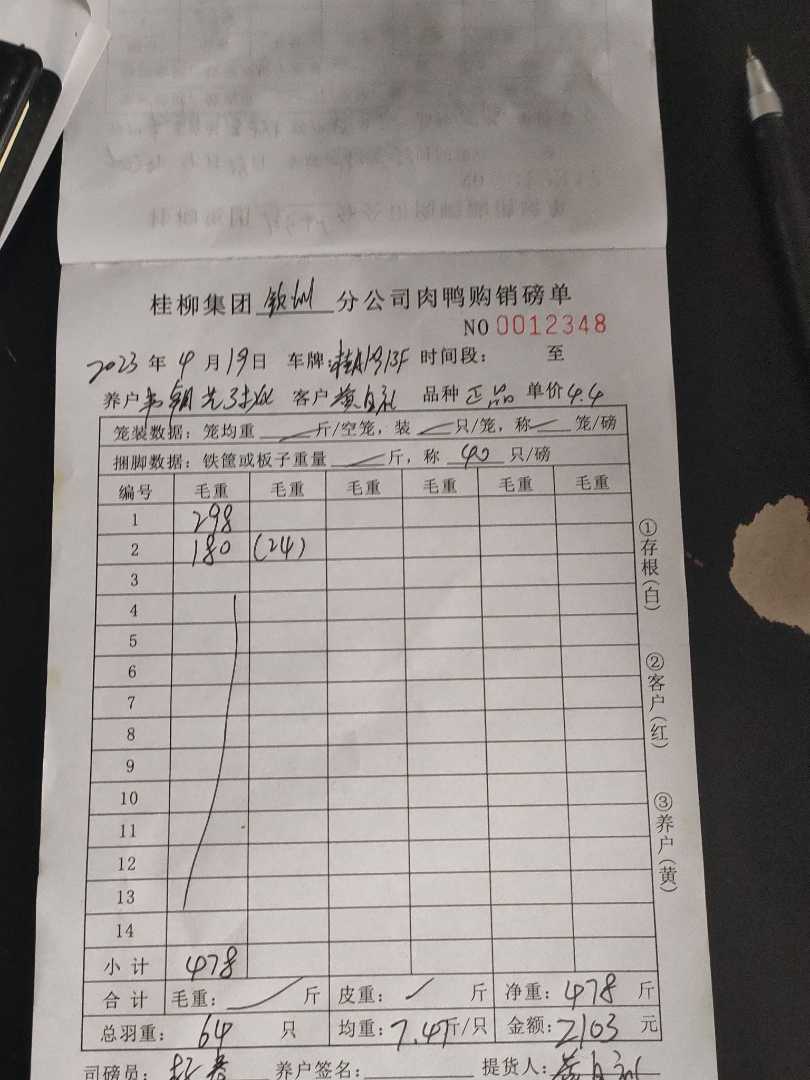 桂柳集团 钦州 分公司肉鸭购销磅单
NO 0012348
2023 年 4 月 19 日 车牌: 时间段: 至
养户 客户 黄自礼 品种 正品 单价 4.4
笼装数据: 笼均重 斤/空笼, 装 只/笼, 称 笼/磅
捆脚数据: 铁筐或板子重量 斤, 称 40 只/磅
编号 毛重 毛重 毛重 毛重 毛重 毛重
1 298
2 180 (24)
3
4
5
6
7
8
9
10
11
12
13
14
小计 478
合计 毛重: 斤 皮重: 斤 净重: 478 斤
总羽重: 64 只 均重: 7.47斤/只 金额: 2103 元
司磅员: 养户签名: 提货人: 黄自礼
①存根(白)
②客户(红)
③养户(黄)